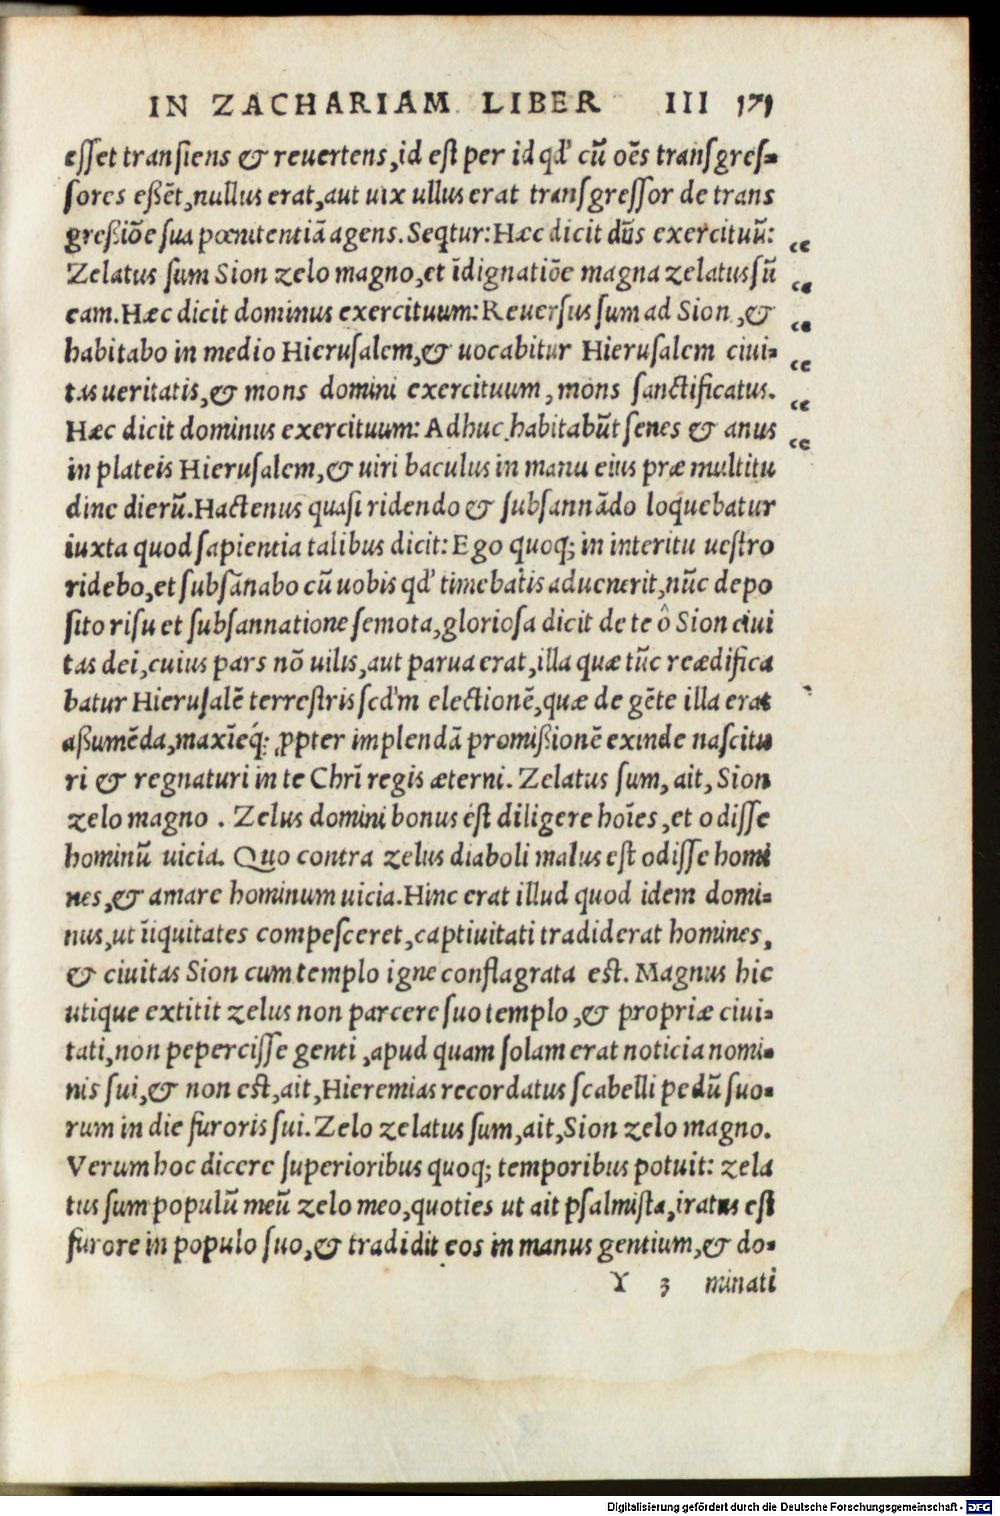 IN ZACHARIAM LIBER III 171
esset transiens & reuertens, id est per id qd' cū oēs transgres-
sores eßēt, nullus erat, aut uix ullus erat transgressor de trans
greßiōe sua pœnitentiā agens. Seqtur: Hæc dicit dn̄s exercituū:
Zelatus sum Sion zelo magno, et īdignatiōe magna zelatus sū
eam. Hæc dicit dominus exercituum: Reuersus sum ad Sion, &
habitabo in medio Hierusalem, & uocabitur Hierusalem ciui-
tas ueritatis, & mons domini exercituum, mons sanctificatus.
Hæc dicit dominus exercituum: Adhuc habitabūt senes & anus
in plateis Hierusalem, & uiri baculus in manu eius præ multitu
dine dierū. Hactenus quasi ridendo & subsannādo loquebatur
iuxta quod sapientia talibus dicit: Ego quoq; in interitu uestro
ridebo, et subsānabo cū uobis qd' timebatis aduenerit, nūc depo
sito risu et subsannatione semota, gloriosa dicit de te ô Sion ciui
tas dei, cuius pars nō uilis, aut parua erat, illa quæ tūc reædifica
batur Hierusalē terrestris scd'm electionē, quæ de gēte illa erat
aßumēda, maxīeq́; ꝓpter implendā promißionē exinde nascitu
ri & regnaturi in te Chrī regis æterni. Zelatus sum, ait, Sion
zelo magno. Zelus domini bonus est diligere hoīes, et odisse
hominū uicia. Quo contra zelus diaboli malus est odisse homi
nes, & amare hominum uicia. Hinc erat illud quod idem domi-
nus, ut īiquitates compesceret, captiuitati tradiderat homines,
& ciuitas Sion cum templo igne conflagrata est. Magnus hic
utique extitit zelus non parcere suo templo, & propriæ ciui-
tati, non pepercisse genti, apud quam solam erat noticia nomi-
nis sui, & non est, ait, Hieremias recordatus scabelli pedū suo-
rum in die furoris sui. Zelo zelatus sum, ait, Sion zelo magno.
Verum hoc dicere superioribus quoq; temporibus potuit: zela
tus sum populū meū zelo meo, quoties ut ait psalmista, iratus est
furore in populo suo, & tradidit eos in manus gentium, & do-
Y 3 minati
Digitalisierung gefördert durch die Deutsche Forschungsgemeinschaft - DFG